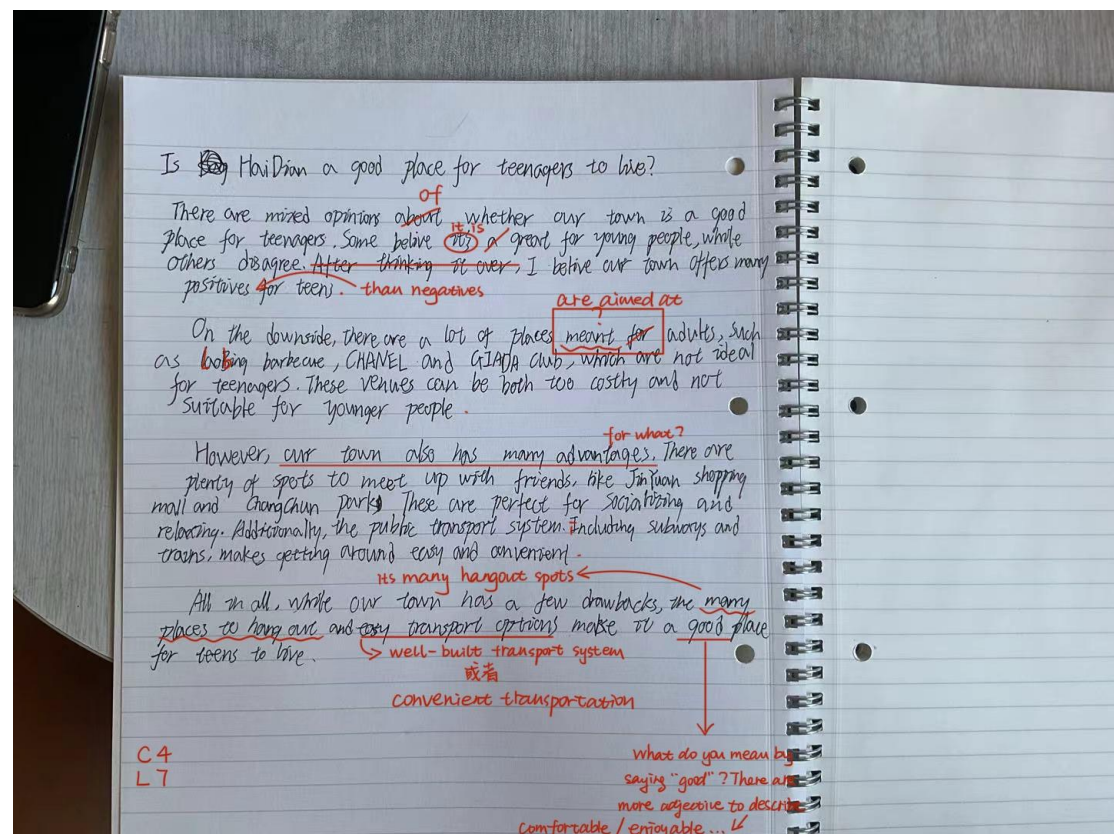 Is HaiDian a good place for teenagers to live?
of
There are mixed opinions about whether our town is a good
it is
place for teenagers. Some belive its a great for young people, while
others disagree. After thinking it over, I belive our town offers many
positives for teens. than negatives
are aimed at
On the downside, there are a lot of places meant for adults, such
as barbecue, CHANEL and GIADA club, which are not ideal
for teenagers. These venues can be both too costly and not
suitable for younger people.
for what?
However, our town also has many advantages. There are
plenty of spots to meet up with friends, like JinYuan shopping
mall and ChangChun park. These are perfect for socializing and
relaxing. Additionally, the public transport system. Including subways and
trains, makes getting around easy and convenient.
its many hangout spots
All in all, while our town has a few drawbacks, the many
places to hang out and easy transport options make it a good place
for teens to live.
well-built transport system
或者
convenient transportation
C4
L7
What do you mean by
saying "good"? There are
more adjective to describe
comfortable / enjoyable ...